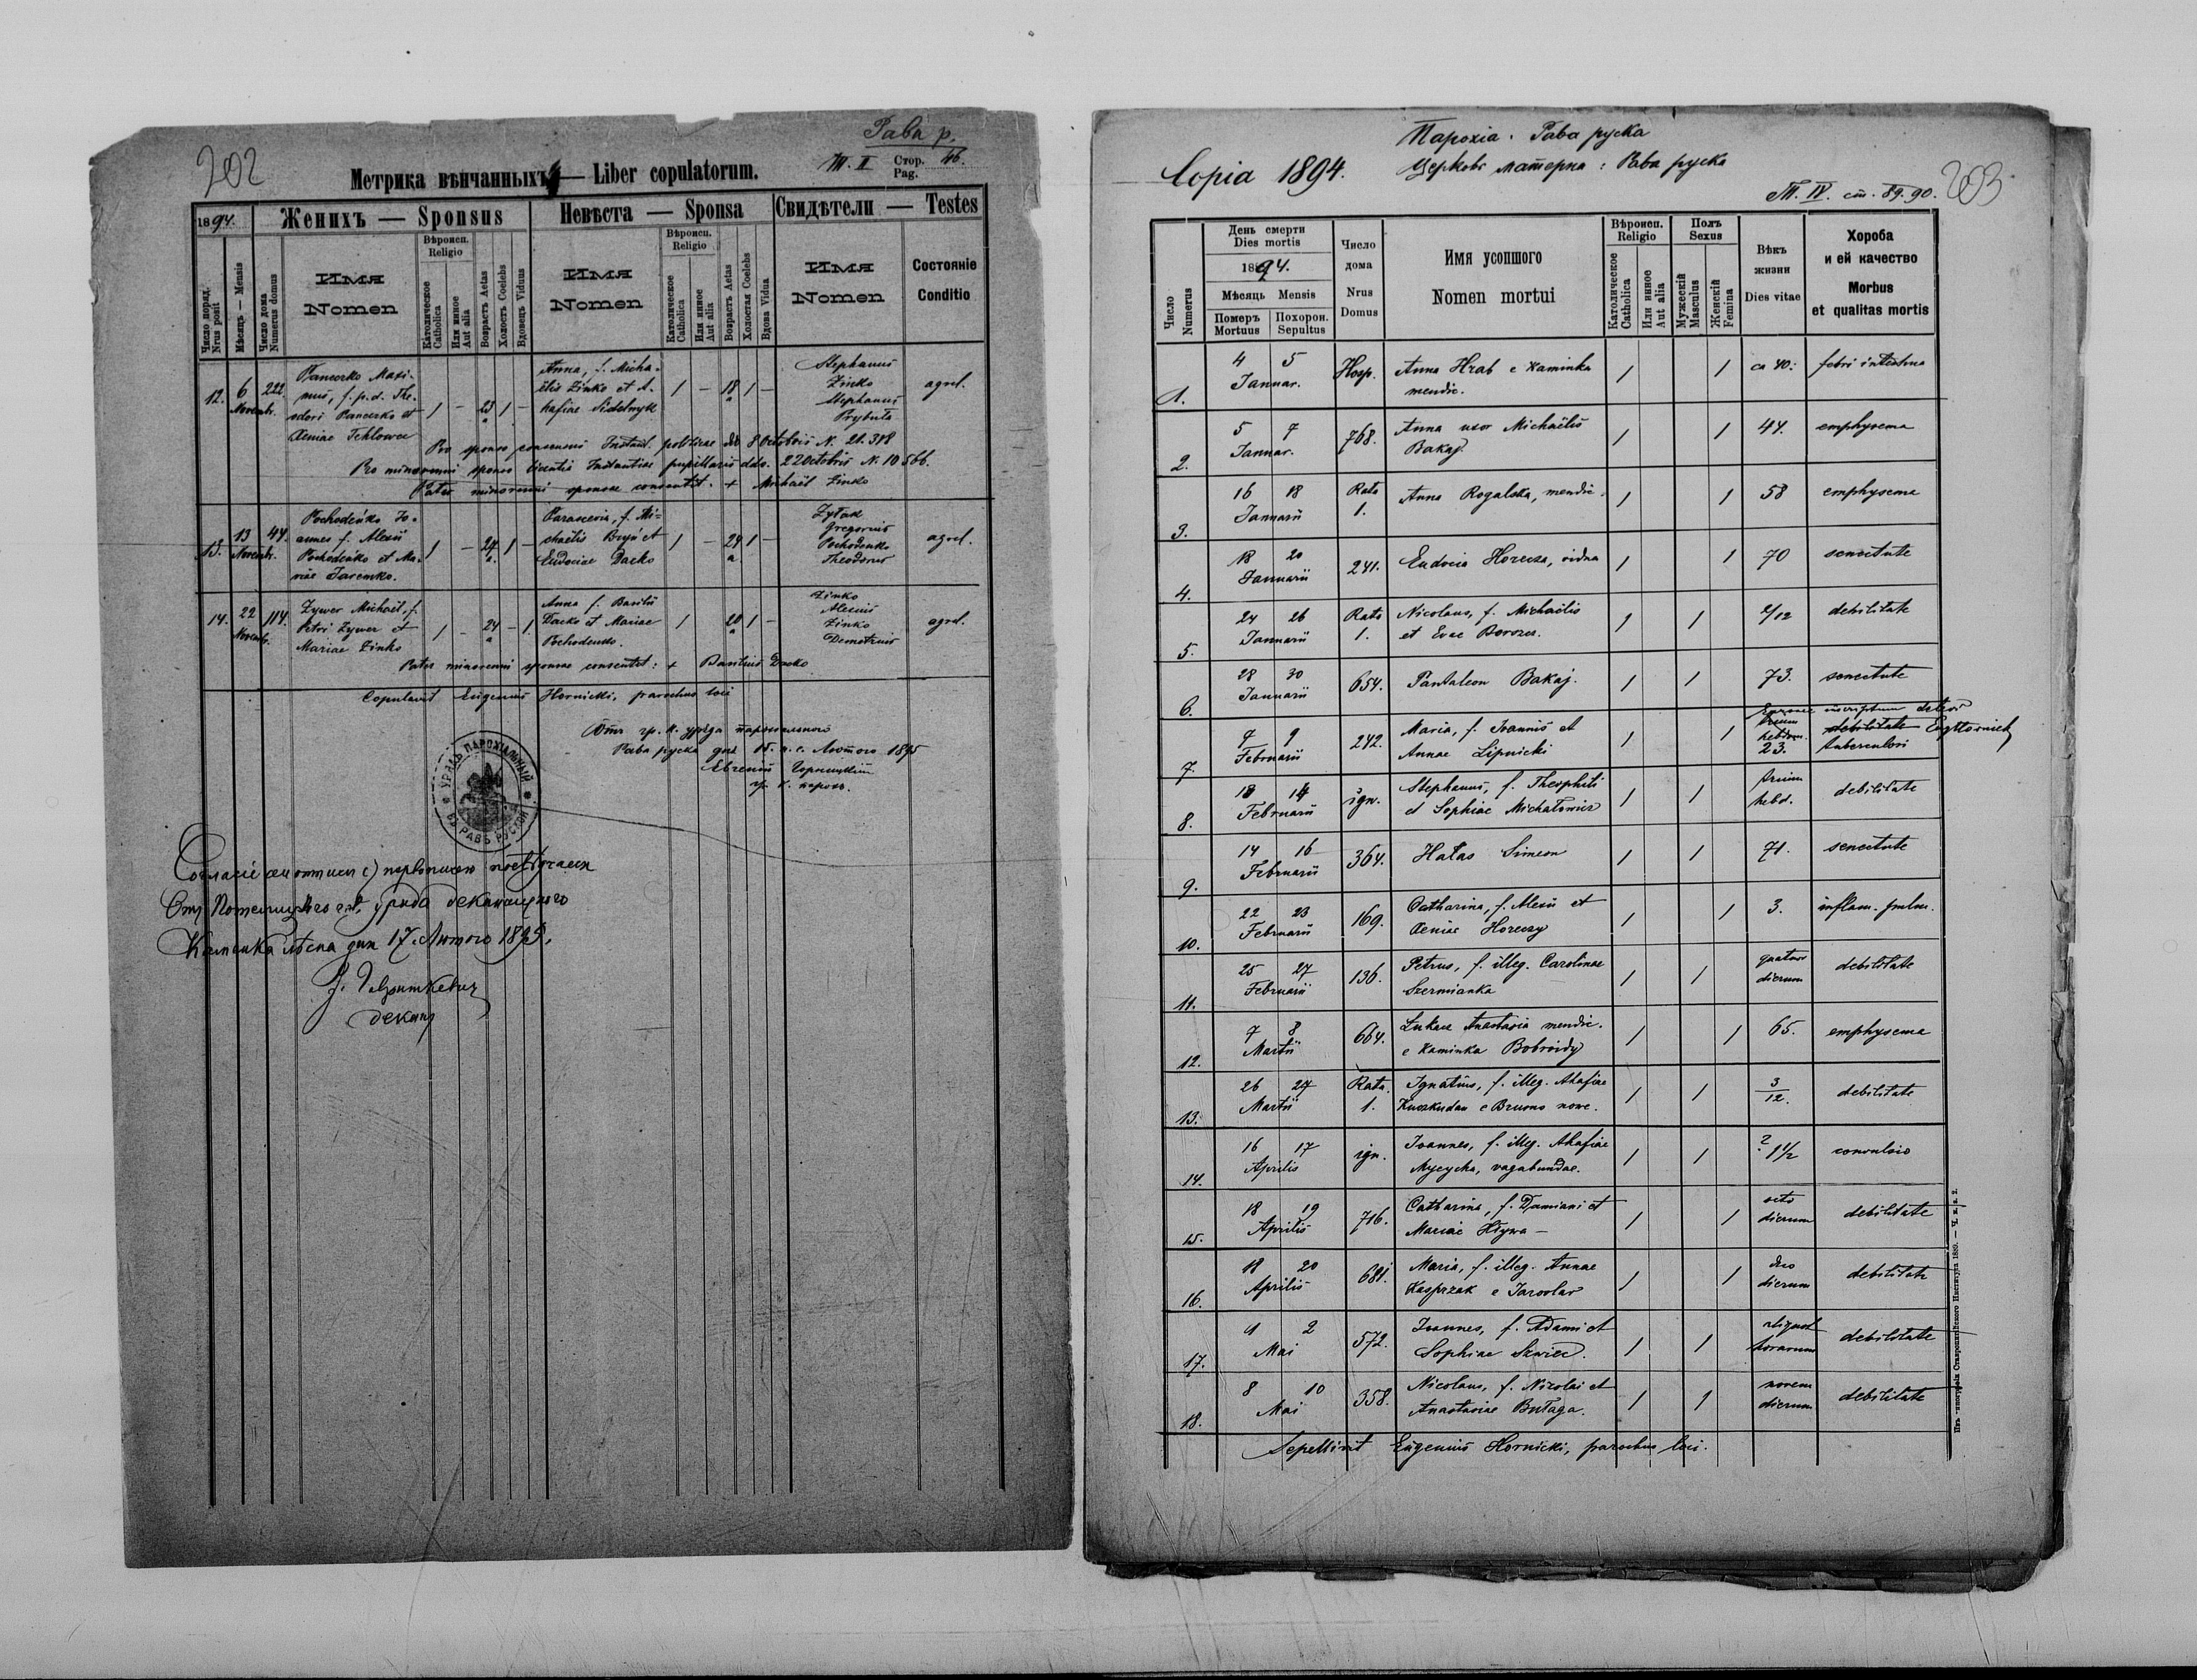 202
Рава р.
Т. II Стор. Pag. 46.
Метрика вѣнчанныхъ — Liber copulatorum.
1894. Женихъ — Sponsus Невѣста — Sponsa Свидѣтели — Testes
Число поряд. Nrus posit
Мѣсяць — Mensis
Число дома Numerus domus
Имя Nomen
Вѣроисп. Religio
Католическое Catholica
Или инное Aut alia
Возрастъ Aetas
Холостъ Coelebs
Вдовецъ Viduus
Имя Nomen
Вѣроисп. Religio
Католическое Catholica
Или инное Aut alia
Возрастъ Aetas
Холостая Coelebs
Вдова Vidua
Имя Nomen
Состояніе Conditio
12. 6 Novembr. 222.
Panczko Maxi-
mus, f. p. d. The-
odori Panczko et
Xeniae
1 – 23 a. 1 –
Anna, f. Micha-
ëlis Zinko et A-
hafiae Sidelnyk
1 – 18 a 1 –
Stephanus
Zinko
Stephanus
Prybuła
agrel.
Pro sponso consensus Instant. politicae dto 8 Octobris N. 21.388
Pro minorenni sponso licentia Instantiae pupillaris ddo. 22 Octobris N. 10566.
Pater minorenni sponsae consentit. + Michaël Zinko
13. 13 Novembr. 44.
Pochodeńko Jo-
annes f. Alexii
Pochodeńko et Ma-
riae Jaremko.
1 – 24 a. 1 –
Parascevia, f. Mi-
chaëlis Bryń et
Eudociae Dacko
1 – 24 a 1 –
Zyłak
Gregorius
Pochodenko
Theodorus
agrel.
14. 22 Novembr. 114.
Zywer Michaël, f.
Petri Zywer et
Mariae Zinko
1 – 24 a – 1
Anna f. Basilii
Dacko et Mariae
Pochodenko.
1 20 a 1 –
Zinko
Alexius
Zinko
Demetrius
agrel.
Pater minorenni sponsae consentit: + Basilius Dacko
Copulavit Eugenius Hornicki, parochus loci
Отъ гр. к. уряда парохіального
Рава руска дня 15. н. с. Лютого 1895
Евгеній Горницкій
гр. к. парох.
УРЯДЪ ПАРОХІАЛЬНЫЙ ВЪ РАВѢ РУСКОЙ
Отъ Потелицкого уряда деканального
Каменка лѣсна дня 17. Лютого 1895.
декан
Парохіа. Рава руска
Copia 1894. Церковь матерна: Рава руска
203
Т. IV. ст. 89. 90.
Число Numerus
День смерти Dies mortis
1894.
Мѣсяць Mensis
Померъ Mortuus
Похорон. Sepultus
Число дома Nrus Domus
Имя усопшого Nomen mortui
Вѣроисп. Religio
Католическое Catholica
Или инное Aut alia
Полъ Sexus
Мужескій Masculus
Женскій Femina
Вѣкъ жизни Dies vitae
Хороба и ей качество Morbus et qualitas mortis
1. 4 5 Januar. Hosp. Anna Hrab e Kaminka mendic. 1 1 ca 40: febri intestina
2. 5 7 Januar. 768. Anna uxor Michaëlis Bakaj 1 1 44. emphysema
3. 16 18 Januarii Rata 1. Anna Rogalska, mendic. 1 1 58 emphysema
4. 18 20 Januarii 241. Eudocia Horecza, vidua 1 1 70 senectute
5. 24 26 Januarii Rata 1. Nicolaus, f. Michaëlis et Evae Borozes. 1 1 2/12 debilitate
6. 28 30 Januarii 654. Pantaleon Bakaj. 1 1 73. senectute
7. 7 9 Februarii 242. Maria, f. Joannis et Annae Lipnicki 1 1 trium hebdom. 23. debilitate tuberculosi
Erronee inscriptum deleo EugHornicki
8. 13 14 Februarii ign. Stephanus, f. Theophili et Sophiae Michałowicz 1 1 trium hebd. debilitate
9. 14 16 Februarii 364. Hałas Simeon 1 1 71. senectute
10. 22 23 Februarii 169. Catharina, f. Alexii et Xeniae Horeczy 1 1 3. inflam. pulm.
11. 25 27 Februarii 136. Petrus, f. illeg. Carolinae Szermianka 1 1 quatuor dierum debilitate
12. 7 8 Martii 664. Lukacz Anastasia mendic. e Kaminka Bobroidy 1 1 65. emphysema
13. 26 27 Martii Rata 1. Ignatius, f. illeg. Ahafiae Kuszkudan e Brusno nowe. 1 1 3/12. debilitate
14. 16 17 Aprilis ign. Joannes, f. illeg. Ahafiae Mycycha, vagabundae. 1 1 ? 1 1/2 convulsio
15. 18 19 Aprilis 716. Catharina, f. Damiani et Mariae Hływa – 1 1 octo dierum debilitate
16. 18 20 Aprilis 681. Maria, f. illeg. Annae Kasprzak e Jaroslav 1 1 duo dierum debilitate
17. 1 2 Mai 572. Joannes, f. Adami et Sophiae Szwiec. 1 1 aliquot horarum debilitate
18. 8 10 Mai 358. Nicolaus, f. Nicolai et Anastasiae Bułaga. 1 1 novem dierum debilitate
Sepellivit Eugenius Hornicki, parochus loci.
Изъ типографіи Ставропигійского Института 1889. — Ч. н. в. 2.